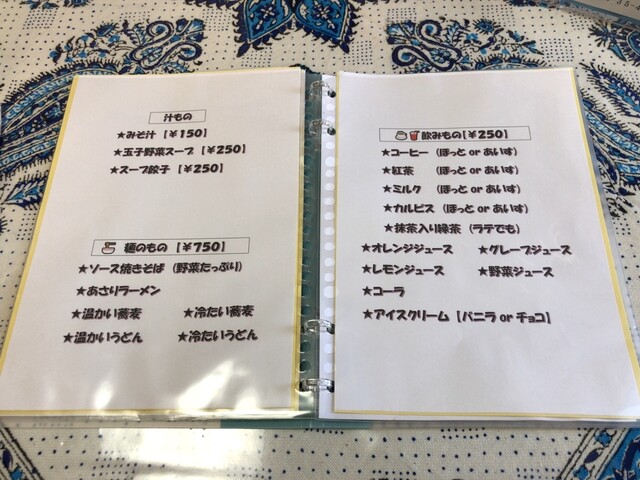 汁もの
★みそ汁【￥150】
★玉子野菜スープ【￥250】
★スープ餃子【￥250】
麺のもの【￥750】
★ソース焼きそば（野菜たっぷり）
★あさりラーメン
★温かい蕎麦 ★冷たい蕎麦
★温かいうどん ★冷たいうどん
飲みもの【￥250】
★コーヒー（ほっと or あいす）
★紅茶（ほっと or あいす）
★ミルク（ほっと or あいす）
★カルピス（ほっと or あいす）
★抹茶入り緑茶（ラテでも）
★オレンジジュース ★グレープジュース
★レモンジュース ★野菜ジュース
★コーラ
★アイスクリーム【バニラ or チョコ】